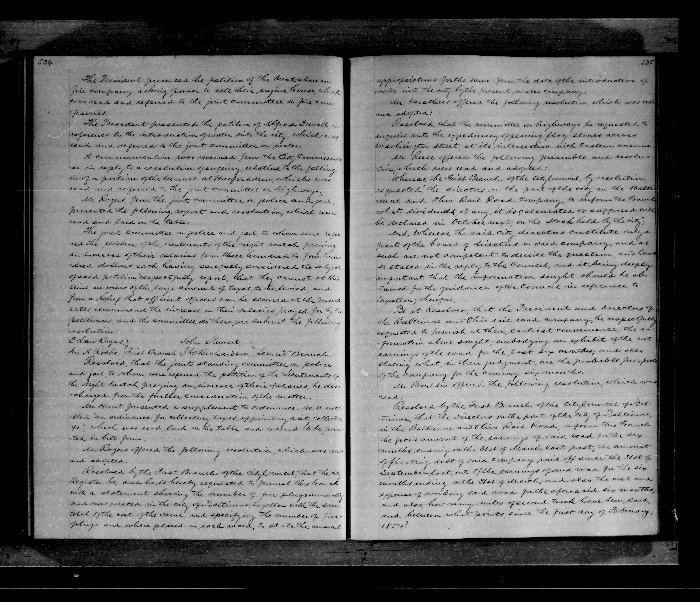 534
The President presented the petition of the
fire company asking power to sell their engine house, which
was read and referred to the joint committee on fire com
panies.
The President presented the petition of Alfred
reference to the introduction of water into the city, which was
read and referred to the joint committee on water.
A communication was received from the City Commissioner
in reply to a resolution of enquiry relative to the
of a portion of the
read and referred to the joint committee on Highways.
Mr. Rogers from the joint committee on police and jail,
presented the following report and resolution, which was
read and laid on the table:
The joint committee on police and jail to whom were refer
red the petition of the lieutenants of the night watch praying
an increase of their salaries from three hundred to four hun
dred dollars each, having carefully considered the subject
of said petition, respectfully report, that they cannot at this
time in view of the large amount of taxes to be levied and
from a belief that efficient officers can be secured at the present
rates recommend the increase in their salaries prayed for by the
petitioners, and the committee do therefore submit the following
resolution:
John Stewart
First Branch
Resolved, that the joint standing committee on police
and jail to whom was referred the petition of the lieutenants of
the night watch praying an increase of their salaries, be dis
charged from the further consideration of the matter.
presented a supplement to ordinance, No. 11 enti
tled an ordinance for collecting taxes appointing collector
&c", which was read, laid on the table and ordered to be prin
ted in bill form.
Mr. Rogers offered the following resolution which was read
and adopted:
Resolved by the First Branch of the City Council, that the
Register be, and he is hereby requested to furnish this branch
with a statement shewing the number of fire plugs annually
and now erected in the city of Baltimore, together with the
total of the cost of the same, and specifying the number of fire
plugs and where placed in each ward, to state the annual
535
appropriations for the same from the date of the introduction of
water into the city by the present water company.
Mr. offered the following resolution which was read
and adopted:
Resolved that the committee on highways be requested to
enquire into the expediency of placing flag stones across
Washington street at its intersection with Eastern avenue.
Mr. Reese offered the following preamble and resolu
tion, which were read and adopted:
Whereas the First Branch of the City Council by resolution
requested the directors on the part of the city in the Balti
more and Ohio Rail Road Company to inform the branch
what dividend, if any, it is calculated or supposed will
be declared in October next, on the stock held by the City,
And, Whereas the said city directors constitute only a
part of the board of directors in said company, and as
such are not competent to decide the question, and have
so stated in the reply to the Council, and it being deeply
important that the information sought should be ob
tained for the guidance of the Council in reference to
taxation, therefore,
Be it Resolved, that the President and directors of
the Baltimore and Ohio rail road company, be respectfully
requested to furnish at their earliest convenience, the in
formation above sought, embodying an exhibit of the net
earnings of the road for the last six months, and also
stating what in their judgment, are the probable prospects
of the Company for the coming six months.
Mr. offered the following resolution, which was
read:
Resolved by the First Branch of the City Council of Bal
timore, that the directors on the part of the City of Baltimore,
in the Baltimore and Ohio Rail Road, inform this branch
the gross amount of the earnings of said road for the six
months ending on the 31st of March last past, the amount
of floating debt of said company paid off since the 30th of
September last, out of the earnings of said road for the six
months ending on the 31st of March, and also the cost and
expense of working said road for the aforesaid six months,
and also how many miles of second track have been laid,
and between what points since the first day of February,
1854?